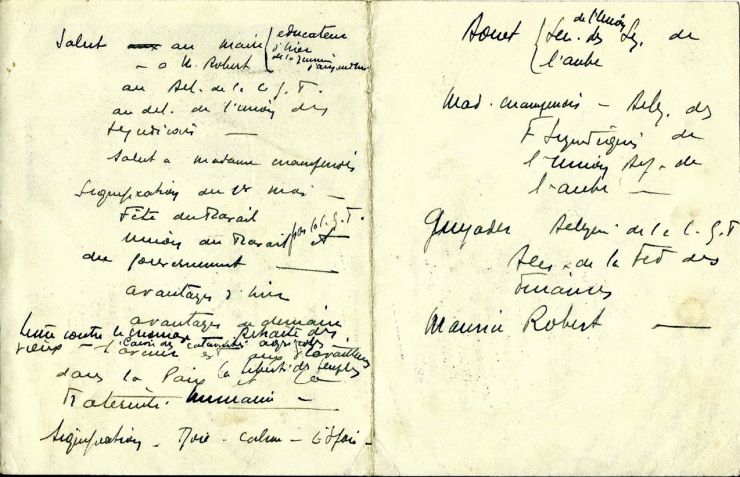 Salut au Maire { educateur
d'hier
de la jeunesse d'aujourd'hui
- a M. Robert
au Del. de la C.G.T.
au del. de l'union des
syndicats —
Salut a madame
Signification du 1er Mai —
Fête du Travail
Union du Travail par la C.G.T. et
du gouvernement —
avantages d'hier
avantages de demain
Lutte contre le Retraite des
vieux — l'avenir est aux Travailleurs
dans la Paix et la liberté des peuples et la
Fraternité humaine —
Signification - Joie - calme - Espoir -
{ Sec. des Sy. de
de l'Union
l'aube
Mad. - Deleg. des
F Syndiquées de
l'Union de
l'aube —
Guyader Delegué de la C.G.T
de la Fed des
Finances
Maurice Robert —